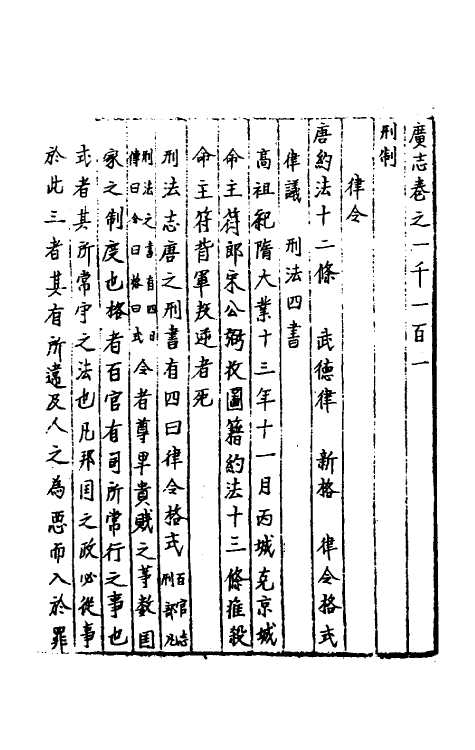 廣志卷之一千一百一
刑制
律令
唐約法十二條　武德律　新格　律令格式
律議　刑法四書
高祖紀隋大業十三年十一月丙城克京城
命主符郎宋公弼收圖籍約法十二條惟殺
命主符背軍叛逆者死
刑法志唐之刑書有四曰律令格式百官志刑部凡
刑法之書有四曰律曰令曰格曰式令者尊卑貴賤之等數國
家之制度也格者百官有司所常行之事也
式者其所常守之法也凡邦國之政必從事
於此三者其有所違及人之為惡而入於罪